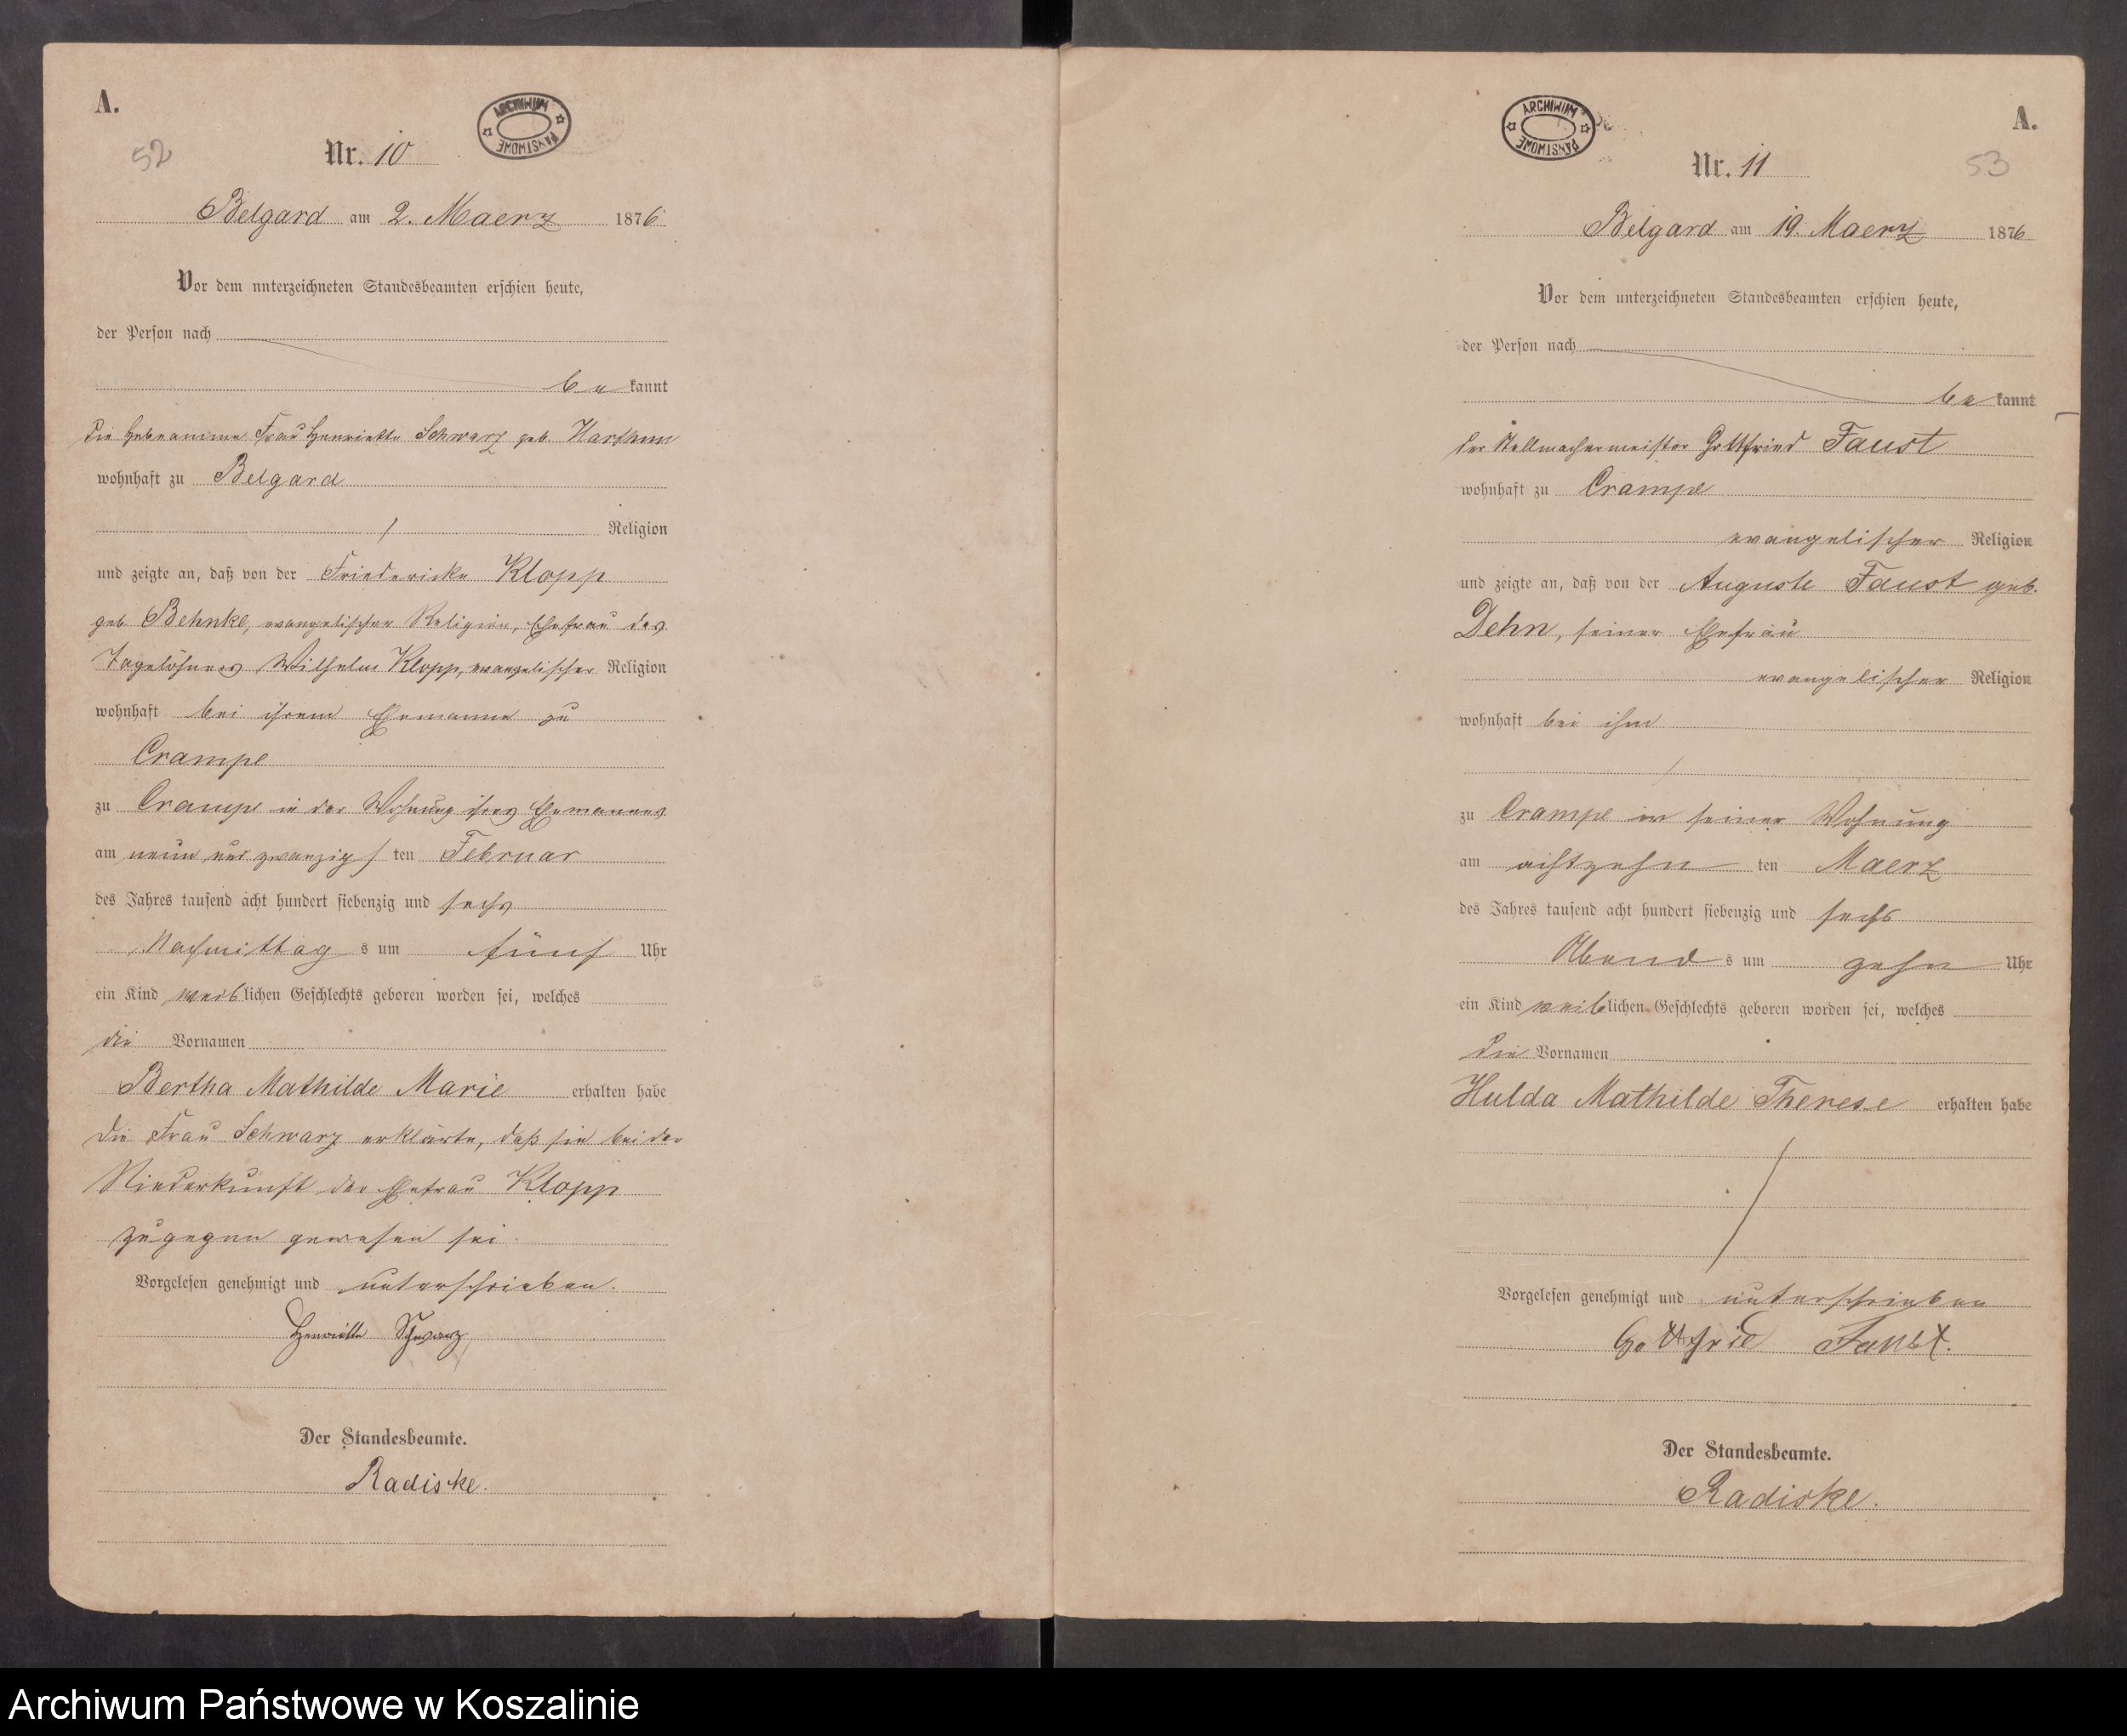 A.
52
Nr. 10
ARCHIWUM PAŃSTWOWE
Belgard am 2. Maerz 1876
Vor dem unterzeichneten Standesbeamten erschien heute,
der Person nach
be kannt
die Hebeamme Frau Henriette Schwarz geb. Harthun
wohnhaft zu Belgard
/ Religion
und zeigte an, daß von der Friedericke Klopp
geb Behnke, evangelischer Religion, Ehefrau des
Tagelöhners Wilhelm Klopp, evangelischer Religion
wohnhaft bei ihrem Ehemanne zu
Crampe
zu Crampe in der Wohnung ihres Ehemannes
am neun und zwanzig / ten Februar
des Jahres tausend acht hundert siebenzig und sechs
Nachmittag s um fünf Uhr
ein Kind weiblichen Geschlechts geboren worden sei, welches
die Vornamen
Bertha Mathilde Marie erhalten habe
Die Frau Schwarz erklärte, daß sie bei der
Niederkunft der Ehefrau Klopp
zugegen gewesen sei.
Vorgelesen genehmigt und unterschrieben.
Henriette Schwarz
Der Standesbeamte.
Radiske.
A.
53
Nr. 11
ARCHIWUM PAŃSTWOWE
Belgard am 19. Maerz 1876
Vor dem unterzeichneten Standesbeamten erschien heute,
der Person nach
be kannt
der Stellmachermeister Gottfried Faust
wohnhaft zu Crampe
evangelischer Religion
und zeigte an, daß von der Auguste Faust geb.
Dehn, seiner Ehefrau
evangelischer Religion
wohnhaft bei ihm
/
zu Crampe in seiner Wohnung
am achtzehn ten Maerz
des Jahres tausend acht hundert siebenzig und sechs
Abend s um zehn Uhr
ein Kind weiblichen Geschlechts geboren worden sei, welches
die Vornamen
Hulda Mathilde Therese erhalten habe
Vorgelesen genehmigt und unterschrieben
Gottfried Faust.
Der Standesbeamte.
Radiske.
Archiwum Państwowe w Koszalinie